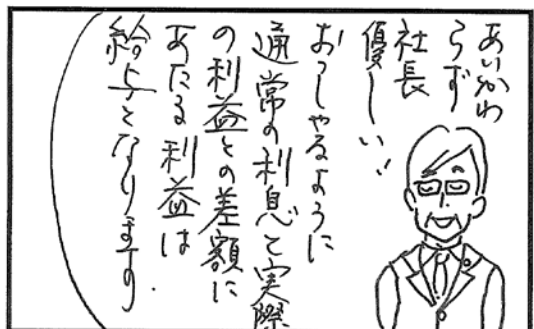 あいかわ
らず
社長
優しい!
おっしゃるように
通常の利息と実際
の利益との差額に
あたる利益は
給与となります。